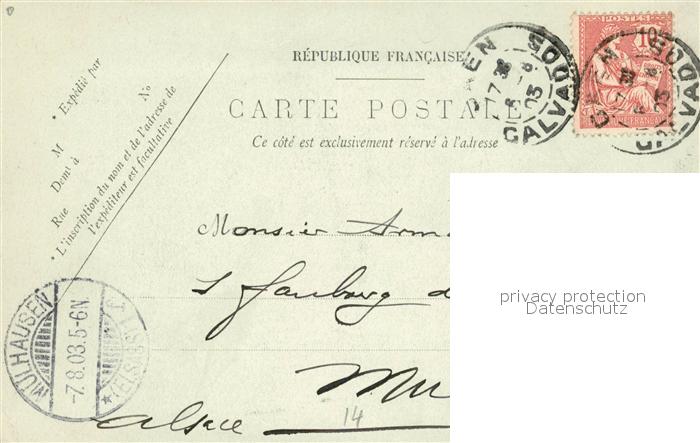 RÉPUBLIQUE FRANÇAISE
CARTE POSTALE
Ce côté est exclusivement réservé à l'adresse
• Expédié par
M
No
Demt à
Rue
• L'inscription du nom et de l'adresse de
l'expéditeur est facultative
POSTES
10
CAEN
CALVADOS
03
CAEN
CALVADOS
03
Monsieur Arm
faubourg d
Mu
Alsace
14
MÜLHAUSEN
-7.8.03.5-6N.
(ELSASS)
privacy protection
Datenschutz